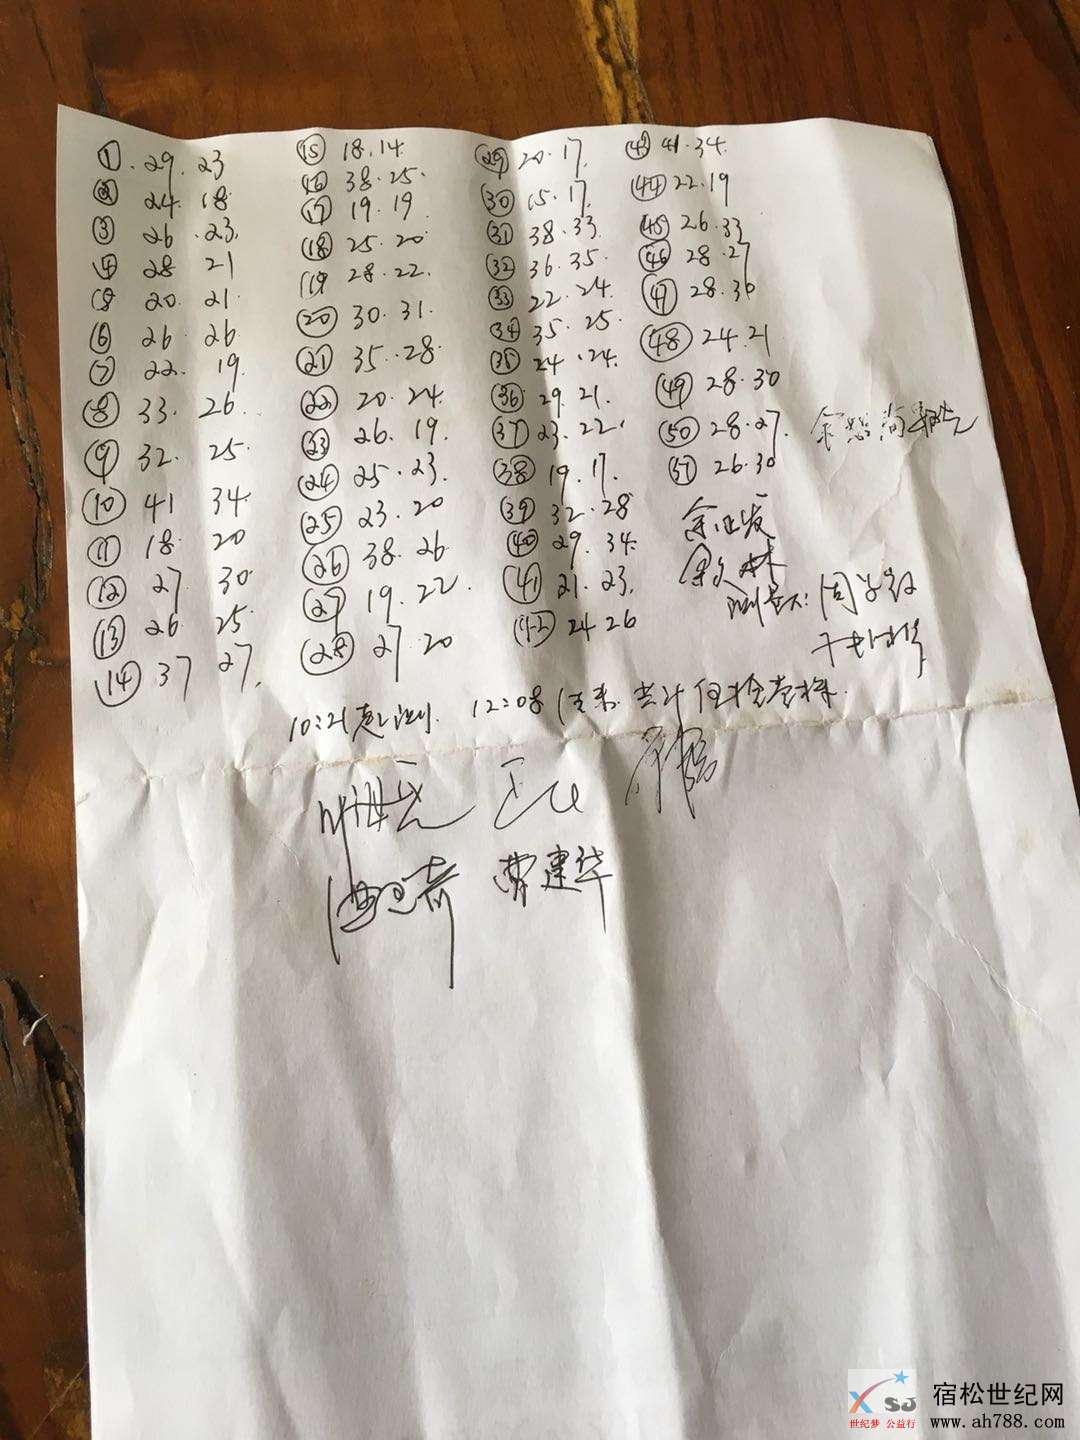 ① 29. 23
② 24. 18
③ 26. 23.
④ 28 21
⑤ 20. 21.
⑥ 26. 26
⑦ 22. 19.
⑧ 33. 26.
⑨ 32. 25.
⑩ 41 34
⑪ 18. 20
⑫ 27. 30
⑬ 26 25
⑭ 37 27.
⑮ 18.14.
⑯ 38.25.
⑰ 19.19
⑱ 25.20
⑲ 28.22.
⑳ 30.31.
㉑ 35.28
㉒ 20.24.
㉝ 26.19.
㉔ 25.23.
㉕ 23.20
㉖ 38.26
㉗ 19.22
㉘ 27.20
㉙ 20.17.
㉚ 15.17.
㉛ 38.33.
㉜ 36.35.
㉝ 22.24.
㉞ 35.25.
㉟ 24.24.
㊱ 29.21.
㊲ 23.22.
㊳ 19.17.
㊴ 32.28
㊵ 29.34.
㊶ 21.23.
㊷ 24 26
㊸ 41.34.
㊹ 22.19
㊺ 26.33
㊻ 28.27
㊼ 28.36
㊽ 24.21
㊾ 28.30
㊿ 28.27.
51 26.30
测量人:周
10:21 测 12:08 结束 共计 检
曹建华
XSJ
世纪梦 公益行
宿松世纪网
www.ah788.com